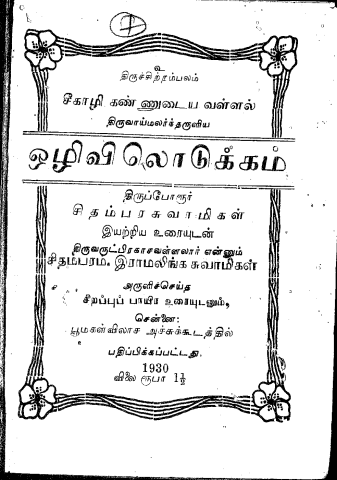 உ
திருச்சிற்றம்பலம்
சீகாழி கண்ணுடைய வள்ளல்
திருவாய்மலர்ந்தருளிய
ஒழிவிலொடுக்கம்
திருப்போரூர்
சிதம்பரசுவாமிகள்
இயற்றிய உரையுடன்
திருவருட்பிரகாசவள்ளலார் என்னும்
சிதம்பரம். இராமலிங்கசுவாமிகள்
அருளிச்செய்த
சிறப்புப் பாயிர உரையுடனும்,
சென்னை:
பூமகள்விலாச அச்சுக்கூடத்தில்
பதிப்பிக்கப்பட்டது.
1930
விலை ரூபா 1½